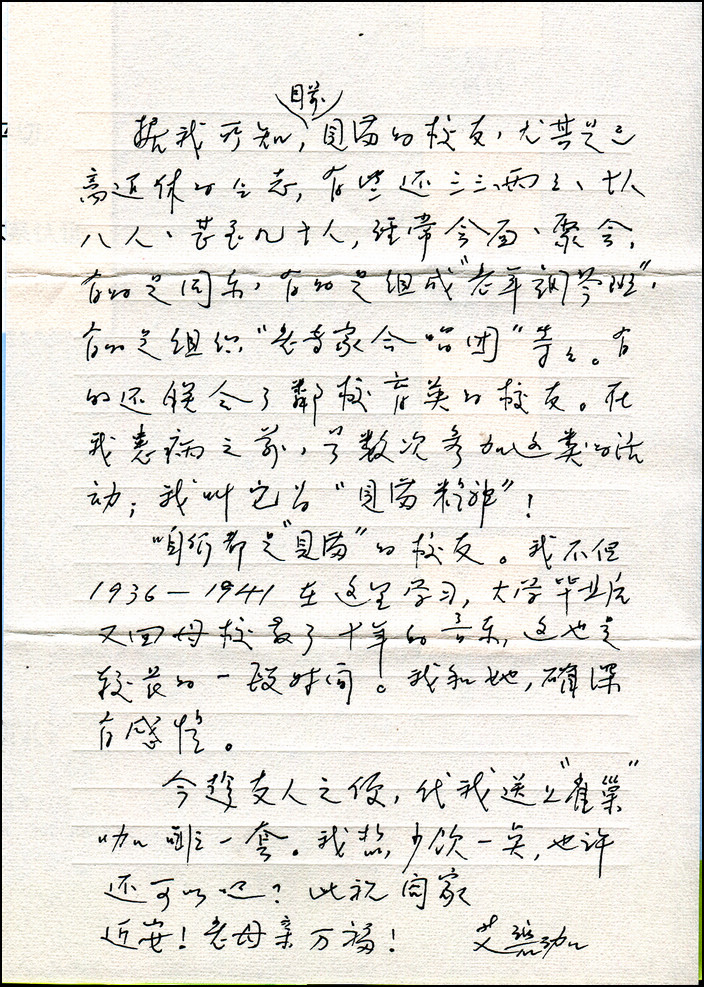 目前
据我所知,贝满的校友,尤其是已
离退休的同志,有些还三三、两两、七人
八人、甚至九十人,经常会面、聚会,
有的是同乐,有的是组成“老年钢琴班”,
有的是组织“老专家合唱团”等等。有
的还联合了邻校育英的校友。在
我患病之前,曾数次参加这类的活
动;我叫它为“贝满精神”!
咱们都是“贝满”的校友。我不但
1936—1941在这里学习,大学毕业后
又回母校教了十年的音乐,这也是
较长的一段时间。我和她,确深
有感情。
今趁友人之便,代我送上“雀巢”
咖啡一套。我想,少饮一点,也许
还可以吧?此祝阖家
近安!老母亲万福!